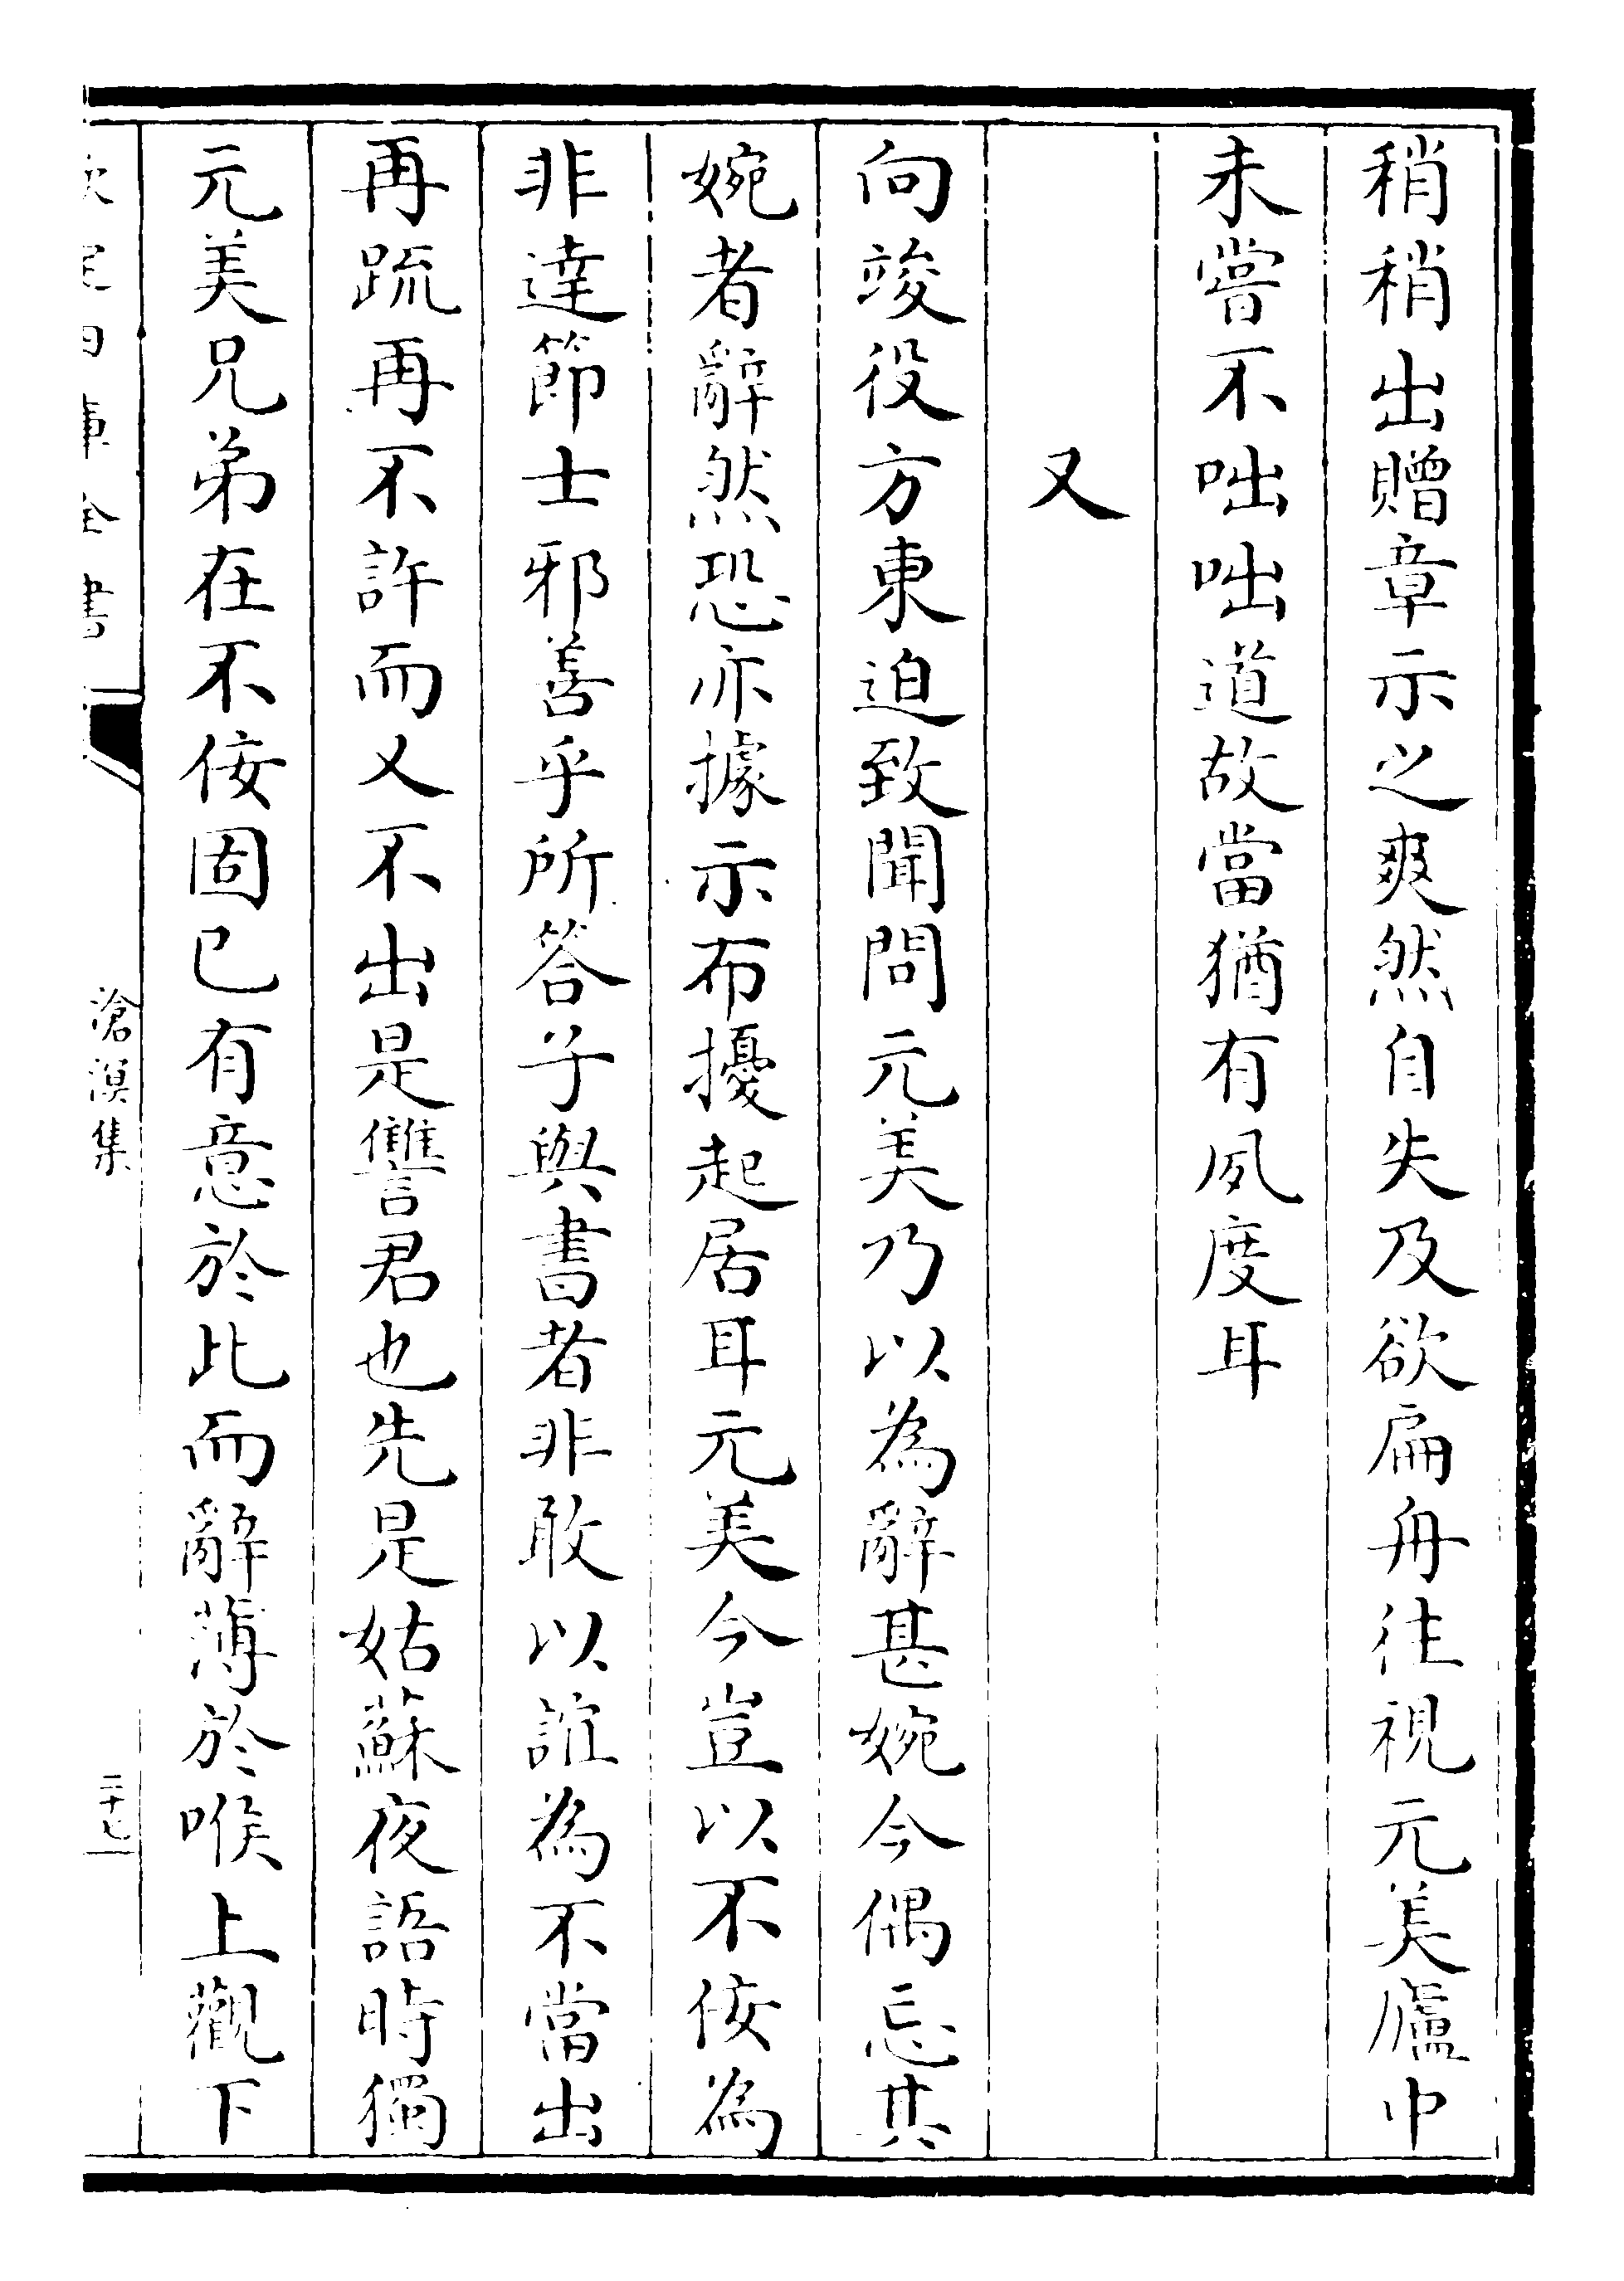 稍稍出贈章示之爽然自失及欲扁舟往視元美廬中
未嘗不咄咄道故當猶有夙度耳
又
向竣役方東迫致聞問元美乃以為辭甚婉今偶忘其
婉者辭然恐亦據示布擾起居耳元美今豈以不佞為
非達節士邪善乎所答子與書者非敢以誼為不當出
再疏再不許而又不出是讐君也先是姑蘇夜語時獨
元美兄弟在不佞固已有意於此而辭薄於喉上觀下
欽定四庫全書
滄溟集
二十七